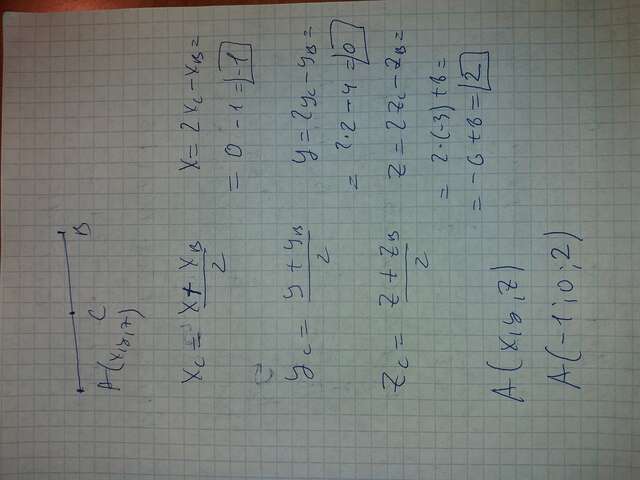 A(x,y,z) C B
x_C = (x + x_B)/2 x = 2x_C - x_B =
= 0 - 1 = -1
y_C = (y + y_B)/2 y = 2y_C - y_B =
= 2·2 - 4 = 0
z_C = (z + z_B)/2 z = 2z_C - z_B =
= 2·(-3) + 8 =
= -6 + 8 = 2
A(x,y,z)
A(-1;0;2)